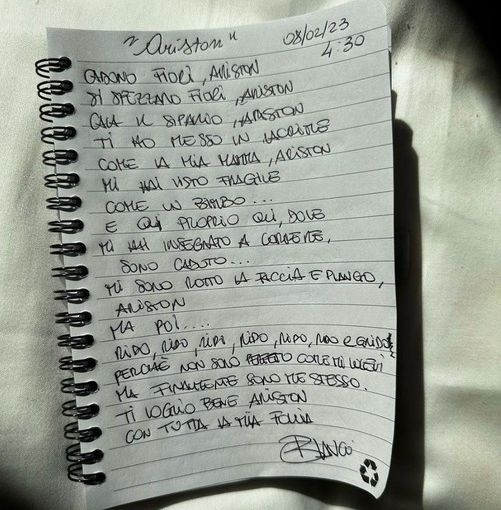 "Ariston"
08/02/23
4:30
CADONO FIORI, ARISTON
SI SPEZZANO FIORI, ARISTON
CALA IL SIPARIO, ARISTON
TI HO MESSO IN LACRIME
COME LA MIA MAMMA, ARISTON
MI HAI VISTO FRAGILE
COME UN BIMBO...
E QUI PROPRIO QUI, DOVE
MI HAI INSEGNATO A CORRERE,
SONO CADUTO...
MI SONO ROTTO LA FACCIA E PIANGO,
ARISTON
MA POI....
RIDO, RIDO, RIDO, RIDO, RIDO, RIDO E GRIDO
PERCHÈ NON SONO PERFETTO COME MI VOLEVI
MA FINALMENTE SONO ME STESSO.
TI VOGLIO BENE ARISTON
CON TUTTA LA MIA FOLLIA
BLANCO